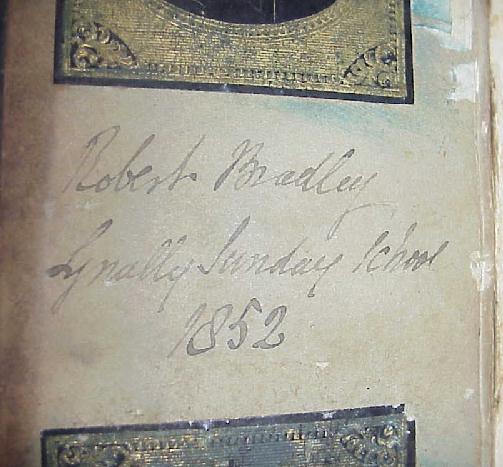 Robert Bradley
Lynally Sunday School
1852